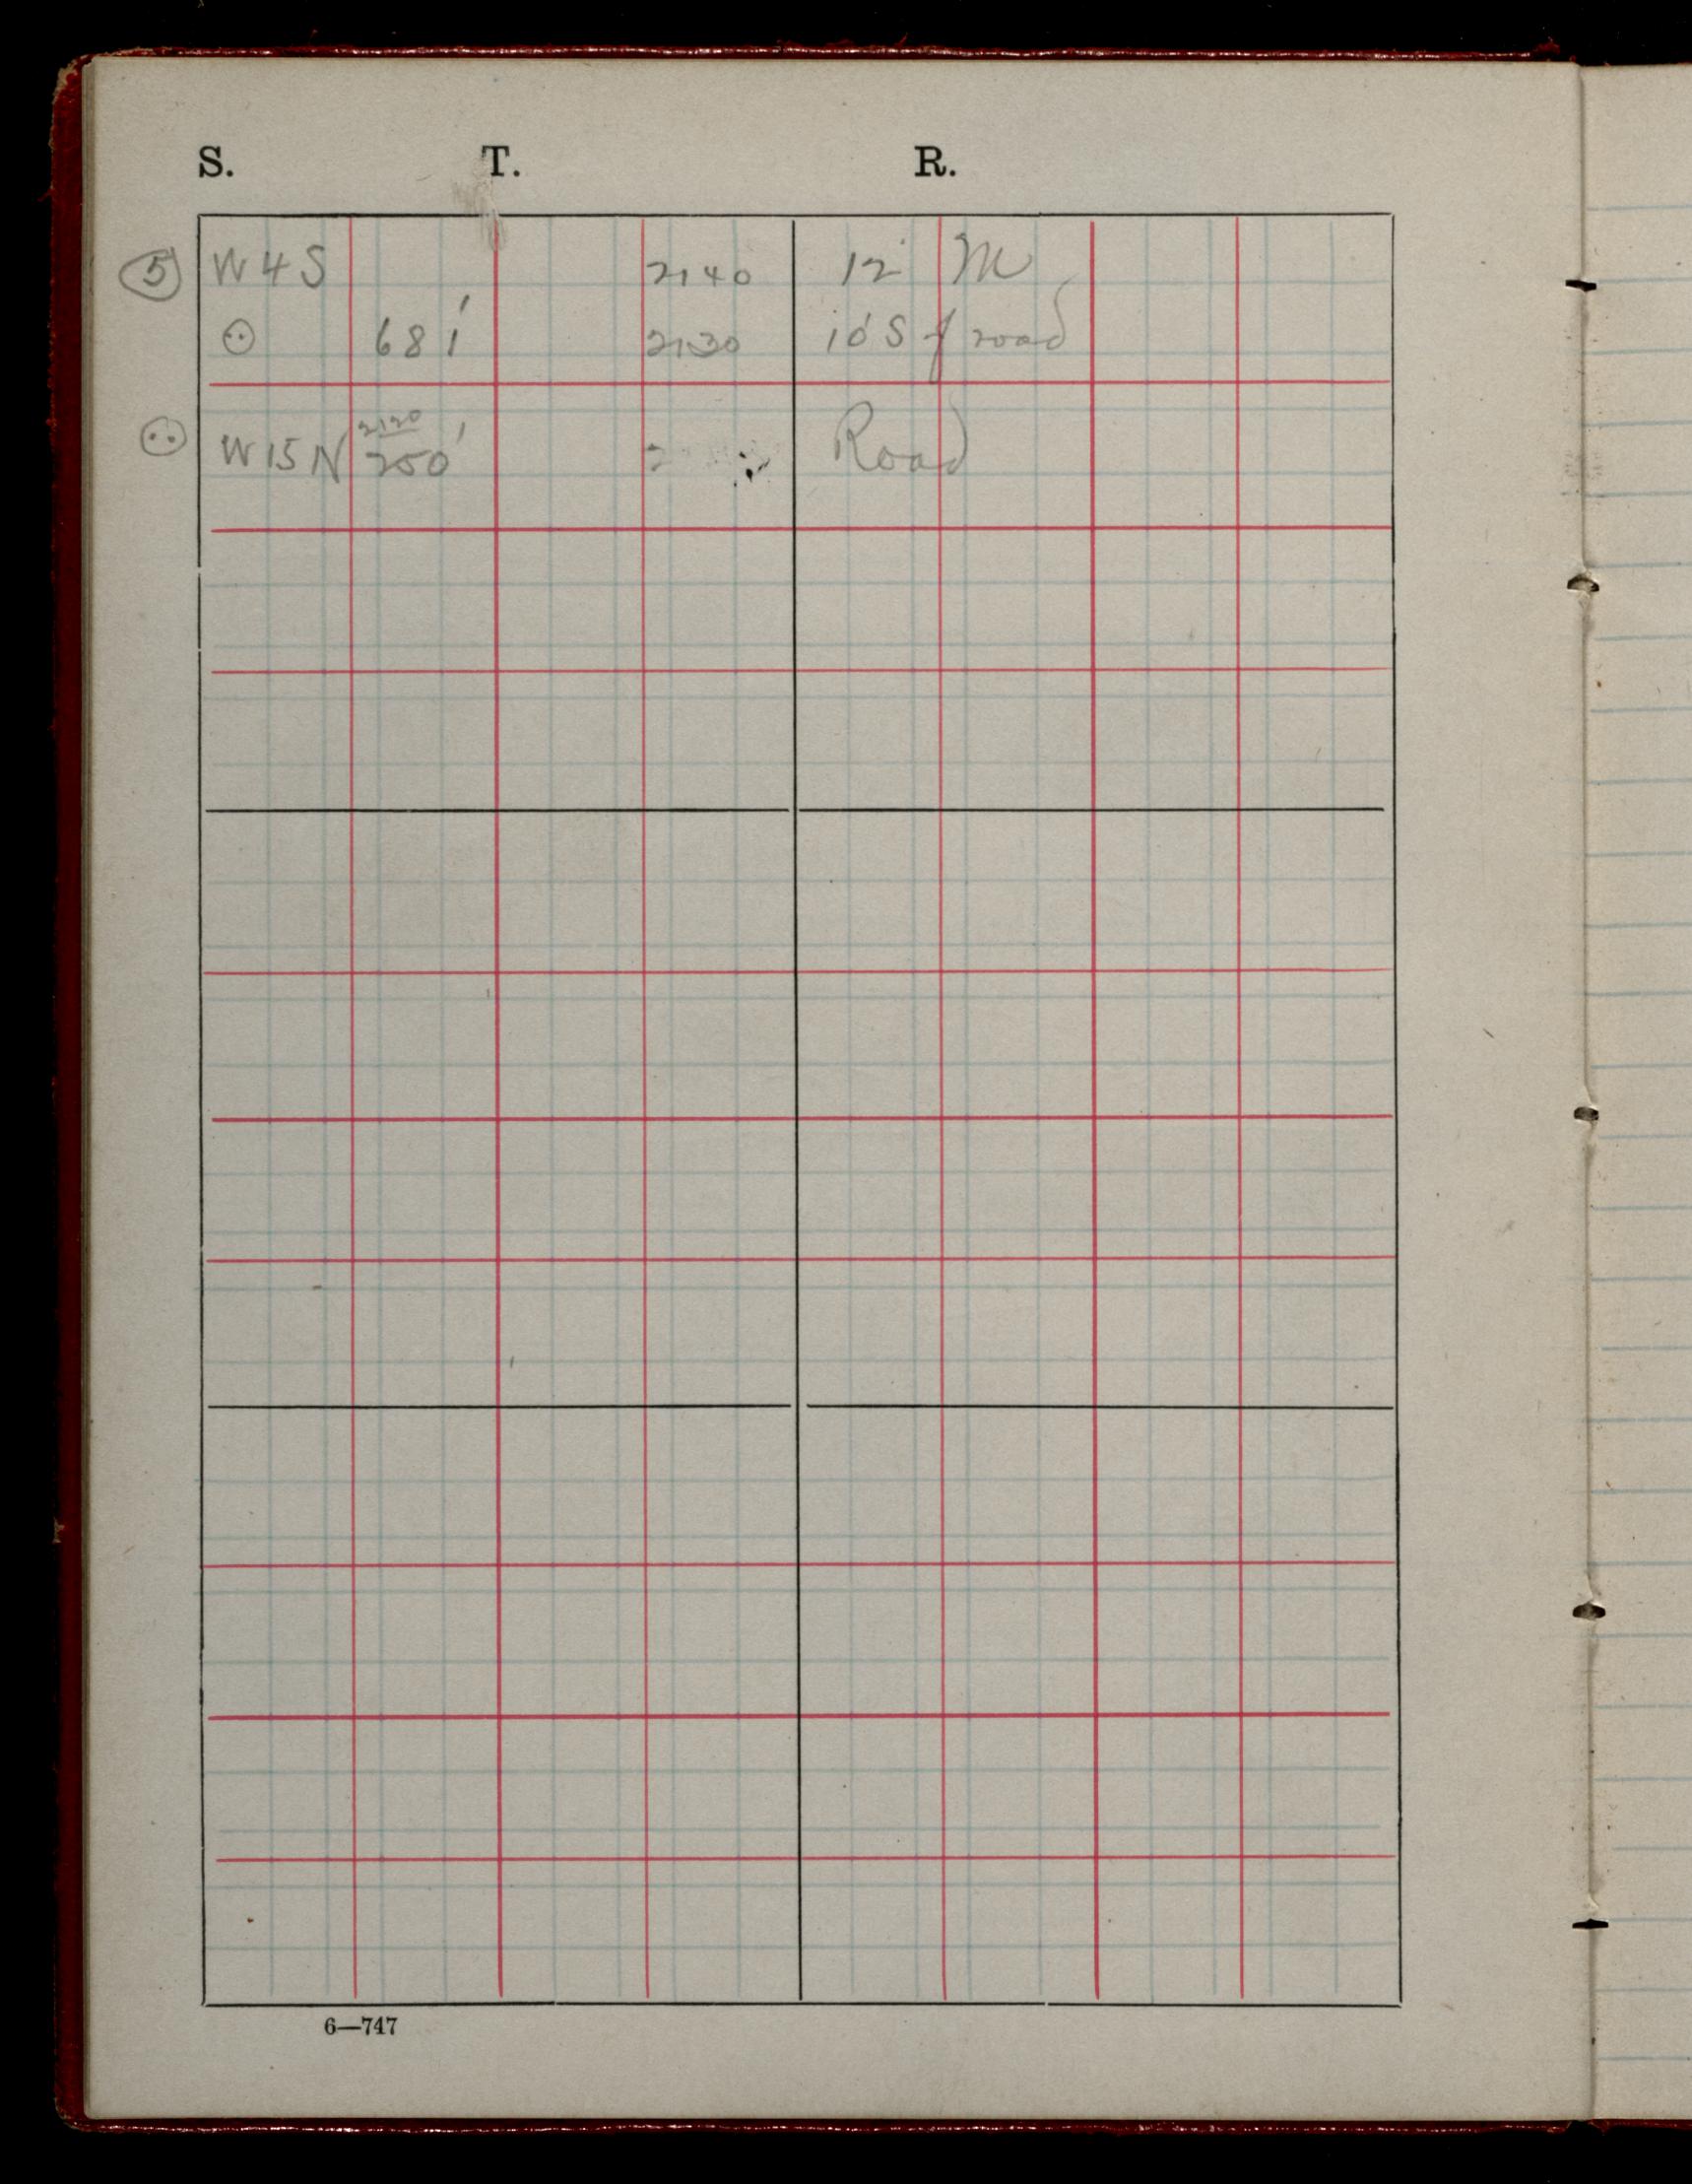 S. T. R.
5 W 4 S 2140 12' M
681' 2130 10' S of road
2120
W 15 N 250' Road
6—747